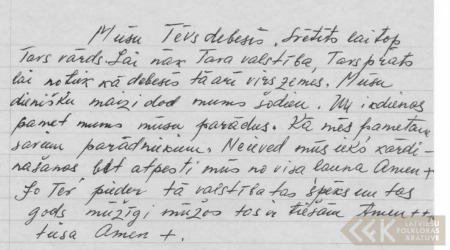 Mūsu Tēvs debesīs, svētīts lai top
Tavs vārds. Lai nāk Tava valstība, Tavs prāts
lai notiek kā debesīs tā arī virs zemes. Mūsu
dienišku maizi dod mums šodien. Un ikdienas
pamet mums mūsu parādus. Kā mēs pametam
saviem parādniekiem. Neieved mūs iekš kārdi-
nāšanas bet atpestī mūs no visa ļauna Amen +
Jo Tev pieder tā valstība tas spēks un tas
gods mūžīgi mūžos tas ir tiešām Amen ++
tiesa Amen +.
LATVIEŠU
FOLKLORAS
KRĀTUVE